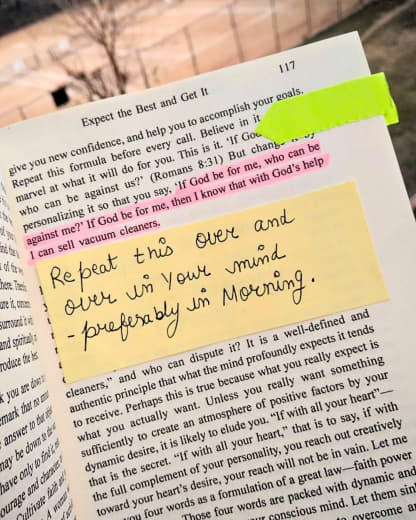 117
Expect the Best and Get It
give you new confidence, and help you to accomplish your goals.
Repeat this formula before every call. Believe in it
marvel at what it will do for you. This is it. 'If God
who can be against us?' (Romans 8:31) But change by
personalizing it so that you say, 'If God be for me, who can be
against me?' If God be for me, then I know that with God's help
I can sell vacuum cleaners.
Repeat this over and
over in Your mind
- preferably in Morning.
cleaners," and who can dispute it? It is a well-defined and
authentic principle that what the mind profoundly expects it tends
to receive. Perhaps this is true because what you really expect is
what you actually want. Unless you really want something
sufficiently to create an atmosphere of positive factors by your
dynamic desire, it is likely to elude you. "If with all your heart"—
that is the secret. "If with all your heart," that is to say, if with
the full complement of your personality, you reach out creatively
toward your heart's desire, your reach will not be in vain. Let me
you four words as a formulation of a great law—faith power
Those four words are packed with dynamic and
conscious mind. Let them sink
overcome